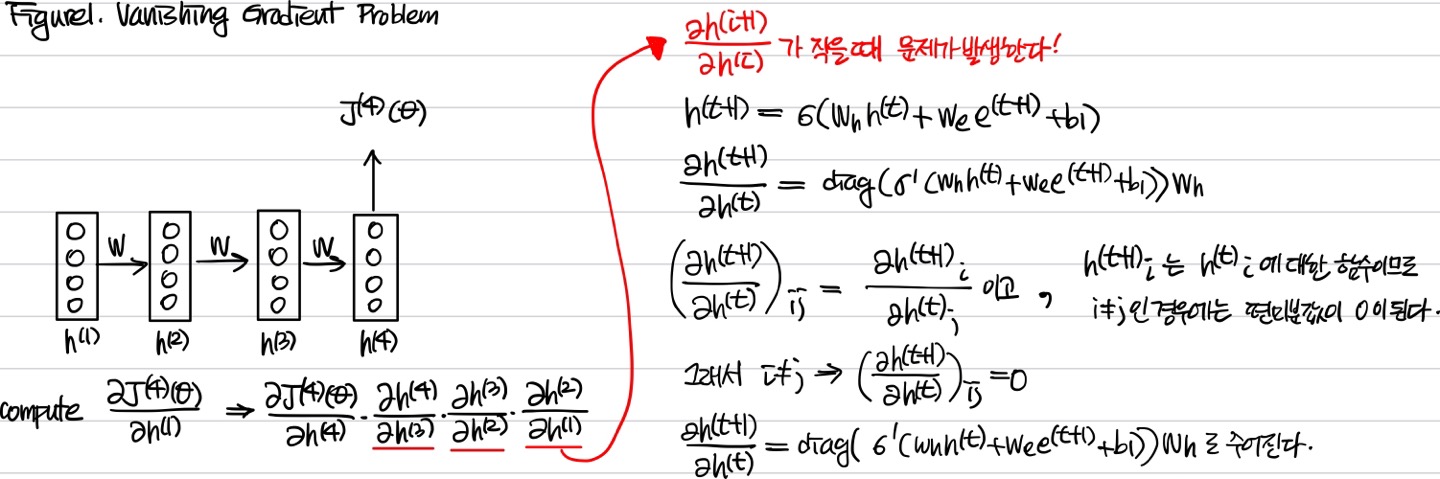 Figure1. Vanishing Gradient Problem
J⁽⁴⁾(θ)
W W W
h⁽¹⁾ h⁽²⁾ h⁽³⁾ h⁽⁴⁾
compute ∂J⁽⁴⁾(θ)/∂h⁽¹⁾ ⇒ ∂J⁽⁴⁾(θ)/∂h⁽⁴⁾ · ∂h⁽⁴⁾/∂h⁽³⁾ · ∂h⁽³⁾/∂h⁽²⁾ · ∂h⁽²⁾/∂h⁽¹⁾
∂h⁽ⁱ⁺¹⁾/∂h⁽ⁱ⁾ 가 작을때 문제가 발생한다!
h⁽ᵗ⁺¹⁾ = σ(Wₕh⁽ᵗ⁾+Wₑe⁽ᵗ⁺¹⁾+b₁)
∂h⁽ᵗ⁺¹⁾/∂h⁽ᵗ⁾ = diag(σ'(Wₕh⁽ᵗ⁾+Wₑe⁽ᵗ⁺¹⁾+b₁))Wₕ
(∂h⁽ᵗ⁺¹⁾/∂h⁽ᵗ⁾)ᵢⱼ = ∂h⁽ᵗ⁺¹⁾ᵢ/∂h⁽ᵗ⁾ⱼ 이고, h⁽ᵗ⁺¹⁾ᵢ는 h⁽ᵗ⁾ᵢ에 대한 함수이므로
i≠j인 경우에는 편미분값이 0이 된다.
그래서 i≠j ⇒ (∂h⁽ᵗ⁺¹⁾/∂h⁽ᵗ⁾)ᵢⱼ = 0
∂h⁽ᵗ⁺¹⁾/∂h⁽ᵗ⁾ = diag(σ'(Wₕh⁽ᵗ⁾+Wₑe⁽ᵗ⁺¹⁾+b₁))Wₕ로 주어진다.